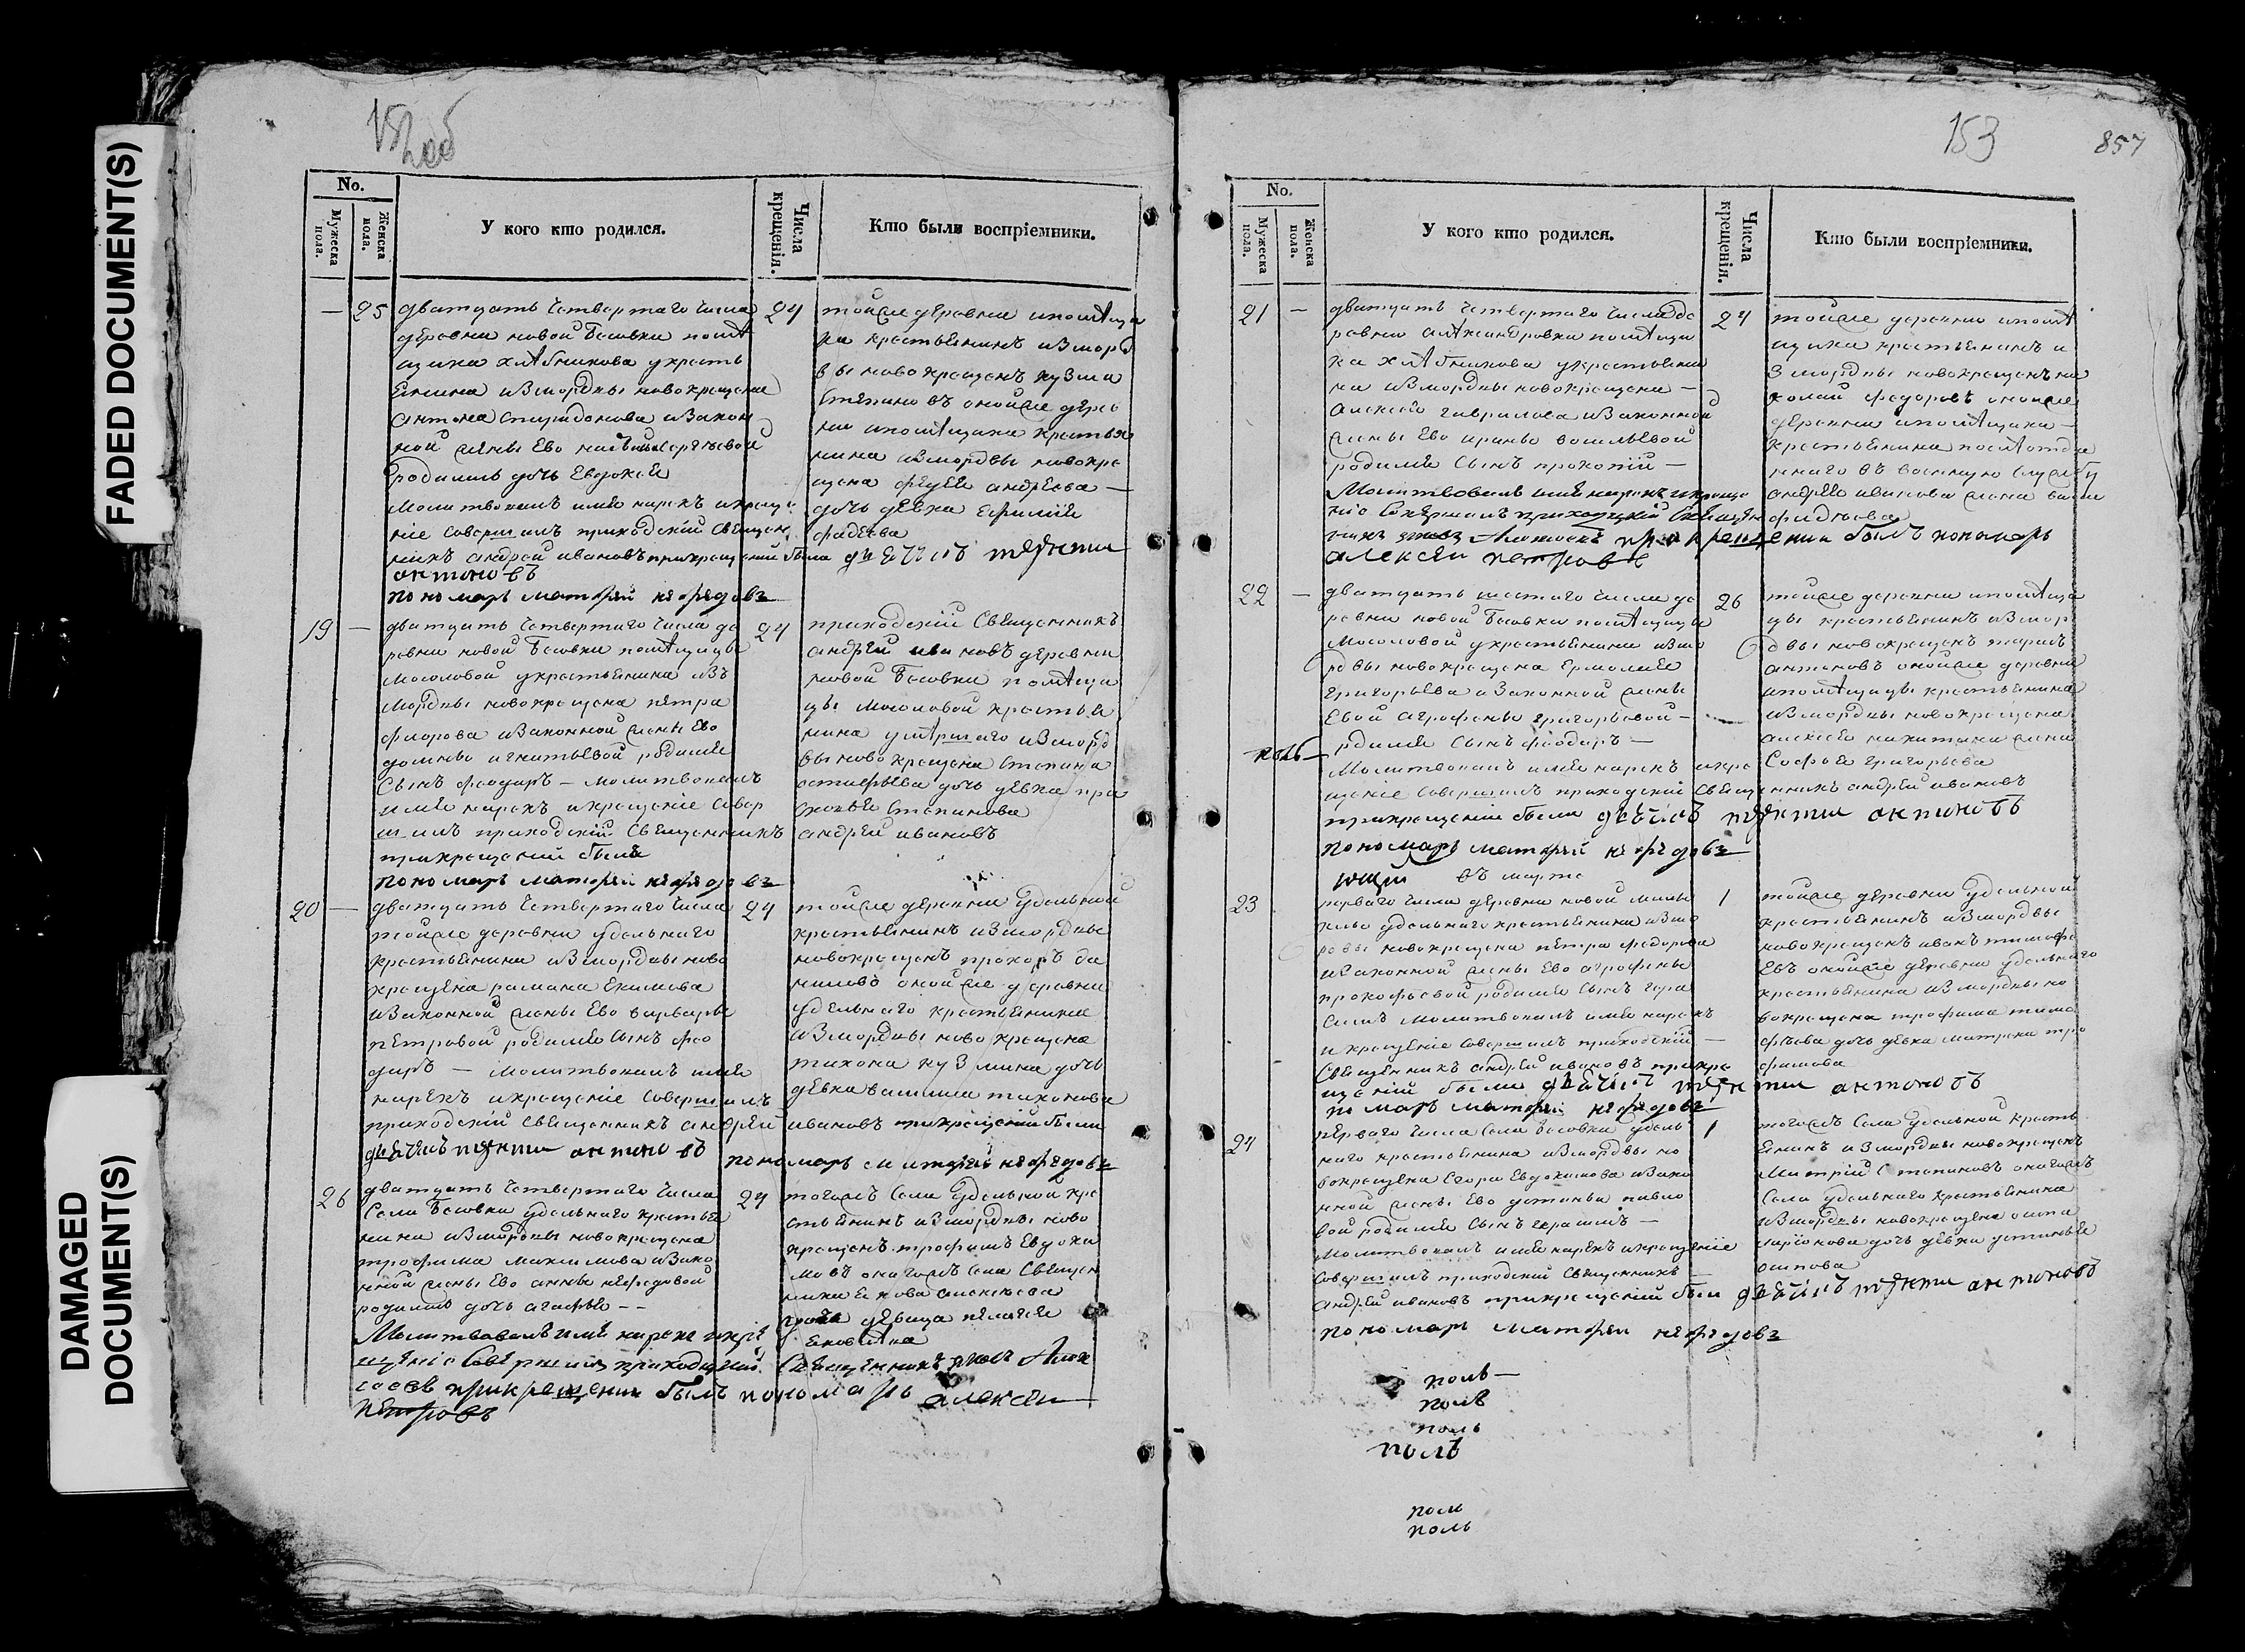 FADED DOCUMENT(S)
DAMAGED
DOCUMENT(S)
152 об
No.
Мужеска пола.
Женска пола.
У кого кто родился.
Числа крещенія.
Кто были воспріемники.
— 25
дватцать четвертаго числа
деревни новой Бесовки помѣ
щика хлѣбникова у кресть
енина измордвы новокрещена
антона спиридонова изакон
ной жены Ево
родилась дочь Евдокея
молитвовалъ имя нарекъ икреще
ніе совершилъ приходскій священ
никъ андрей ивановъ прикрещеній были дьячекъ
антоновъ
пономарь матфей нефедовъ
24
тойже деревни ипомѣщи
ка крестьенинъ измор
вы новокрещенъ кузма
степановъ онойже дерев
ни ипомѣщика крестья
нина измордвы новокре
щена фадея андреева —
дочь девка
фадеева
19 —
дватцать четвертаго числа де
ревни новой Бесовки помѣщицы
мосоловой у крестьенина изъ
мордвы новокрещена петра
флорова изаконной жены Ево
домны игнатьевой родился
сынъ феодоръ — молитвовалъ
имя нарекъ икрещеніе совер
шилъ приходскій священникъ
прикрещеній были
пономарь матфей нефедовъ
24
приходскій священникъ
андрей ивановъ деревни
новой Бесовки помѣщи
цы мосоловой крестья
нина умершаго измор
вы новокрещена степана
остафьева дочь девка пра
сковья степанова
андрей ивановъ
20 —
дватцать четвертаго числа
тойже деревни удельнаго
крестьенина измордвы ново
крещена рамана Екимова
изаконной жены Ево варвары
петровой родился сынъ фео
доръ — молитвовалъ имя
нарекъ икрещеніе совершилъ
приходскій священникъ андрей ивановъ прикрещеній были
дьячекъ антоновъ пономарь матфей нефедовъ
24
тойже деревни удельной
крестьенинъ измордвы
новокрещенъ прохоръ да
ниловъ онойже деревни
удельнаго крестьенина
измордвы новокрещена
тихона кузмина дочь
девка тихонова
26
дватцать четвертаго числа
села Бесовки удельнаго крестья
нина измордвы новокрещена
трофима максимова изако
нной жены Ево анны нефедовой
родилась дочь агафья —
Молитвовалъ имя нарекъ икре
щеніе совершилъ приходскій священникъ
прикрещении былъ пономарь алексеи
петровъ
24
тогожъ села удельной кре
стьенинъ измордвы ново
крещенъ трофимъ Евдоки
мовъ онагожъ села священ
ника алексеева
девица пелагея
153
857
No.
Мужеска пола.
Женска пола.
У кого кто родился.
Числа крещенія.
Кто были воспріемники.
21 —
дватцать четвертаго числа де
ревни помѣщи
ка хлѣбникова у крестьени
на измордвы новокрещена —
алексея гаврилова изаконной
жены Ево ирины васильевой
родился сынъ прокопій —
Молитвовалъ имя нарекъ икреще
ніе совершилъ приходскій священ
никъ прикрещении былъ пономарь
алексеи петровъ
24
тойже деревни ипомѣ
щика крестьенинъ и
змордвы новокрещенъ ни
колай федоровъ онойже
деревни ипомѣщика —
крестьенина
ннаго въ военную службу
андрея иванова жена
22 —
дватцать шестаго числа де
ревни новой Бесовки помѣщицы
Мосоловой у крестьенина измо
рдвы новокрещена Ермолая
григорьева изаконной жены
Евой агрофены григорьевой —
родился сынъ феодоръ —
Молитвовалъ имя нарекъ икре
щеніе совершилъ приходскій священникъ андрей ивановъ
прикрещеніи были дьячекъ антоновъ
пономарь матфей нефедовъ
26
тойже деревни ипомѣщи
цы крестьенинъ измор
двы новокрещенъ
антоновъ онойже деревни
ипомѣщицы крестьенина
измордвы новокрещена
алексея никитина жена
Софья григорьева
поль —
въ марте
23
перваго числа деревни новой
удельнаго крестьенина измо
рдвы новокрещена петра федорова
изаконной жены Ево агрофены
прокофьевой родился сынъ гера
симъ молитвовалъ имя нарекъ
икрещеніе совершилъ приходскій —
священникъ андрей ивановъ прикре
щеній были дьячекъ антоновъ
пономарь матфей нефедовъ
1
тойже деревни удельной
крестьенинъ измордвы
новокрещенъ иванъ тимофе
евъ онойже деревни удельнаго
крестьенина измордвы но
вокрещена трофима тимо
феева дочь девка матрена тро
фимова
24
перваго числа села Бесовки удель
наго крестьенина измордвы но
вокрещена Егора Евдокимова изако
нной жены Ево устиньи павло
вой родился сынъ герасимъ —
молитвовалъ имя нарекъ икрещеніе
совершилъ приходскій священникъ
андрей ивановъ прикрещеній были дьячекъ антоновъ
пономарь матфеи нефедовъ
1
тогожъ села удельной кресть
енинъ измордвы новокрещенъ
Митрій степановъ онагожъ
села удельнаго крестьенина
измордвы новокрещена осипа
ларіонова дочь девка устинья
осипова
поль —
поль
поль
поль
поль
поль